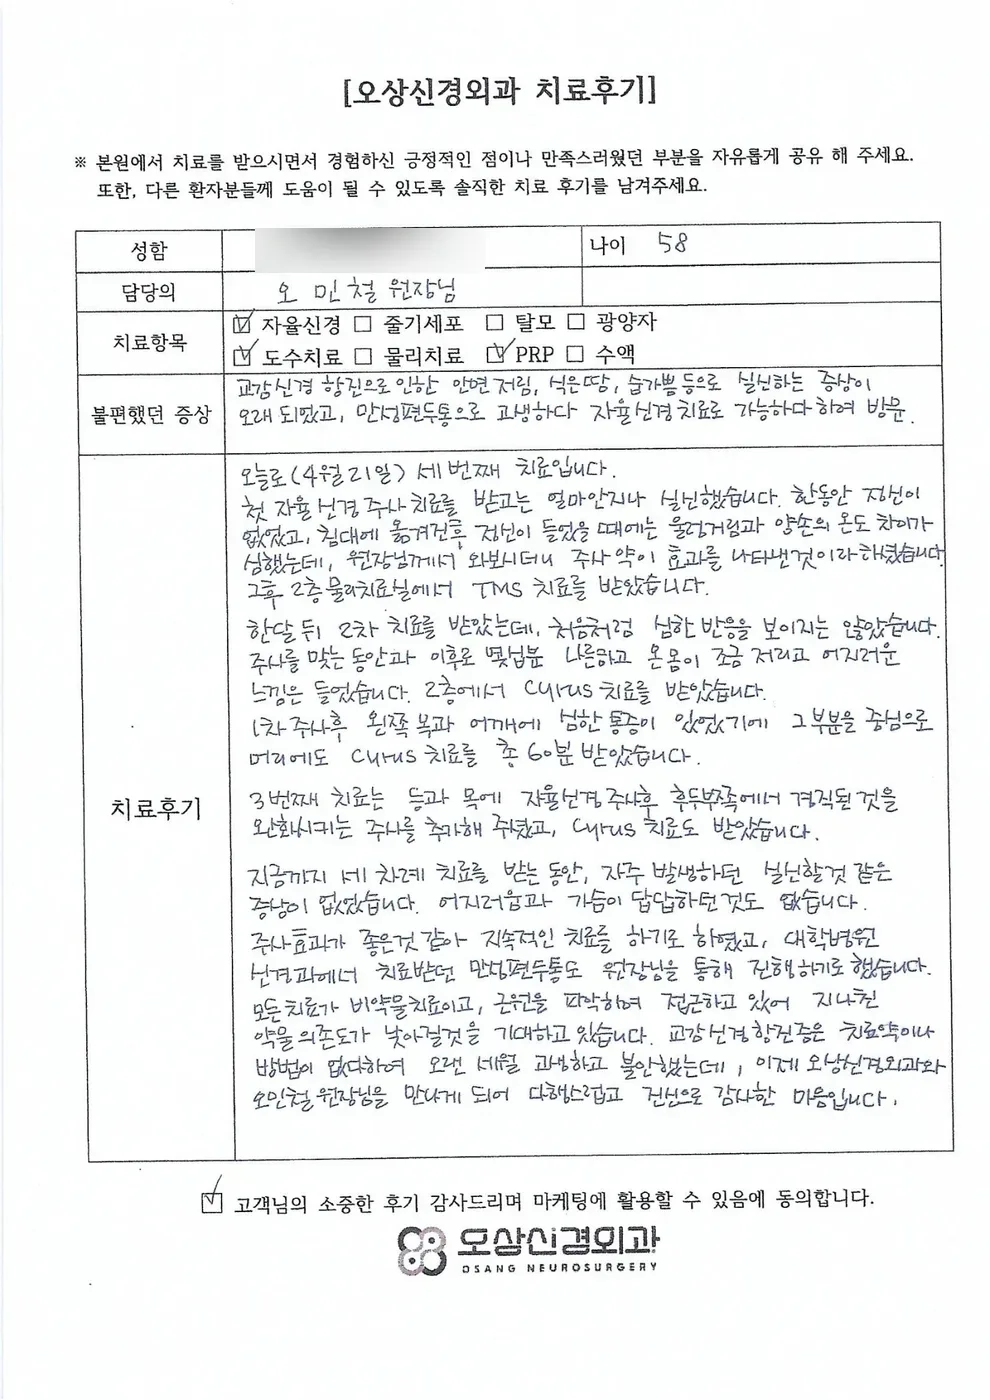 [오상신경외과 치료후기]
※ 본원에서 치료를 받으시면서 경험하신 긍정적인 점이나 만족스러웠던 부분을 자유롭게 공유 해 주세요.
또한, 다른 환자분들께 도움이 될 수 있도록 솔직한 치료 후기를 남겨주세요.
성함
나이 58
담당의 오 민철 원장님
치료항목
☑ 자율신경 □ 줄기세포 □ 탈모 □ 광양자
☑ 도수치료 □ 물리치료 ☑ PRP □ 수액
불편했던 증상
교감신경 항진으로 인한 안면 저림, 식은땀, 숨가쁨 등으로 실신하는 증상이
오래 되었고, 만성편두통으로 고생하다 자율신경치료로 가능하다하여 방문.
치료후기
오늘로(4월21일) 세번째 치료입니다.
첫 자율신경주사 치료를 받고는 얼마안지나 실신했습니다. 한동안 정신이
없었고, 침대에 옮겨진후 정신이 들었을때에는 울렁거림과 양손의 온도차이가
심했는데, 원장님께서 와보시더니 주사약이 효과를 나타낸것이라하셨습니다
그후 2층물리치료실에서 TMS 치료를 받았습니다.
한달 뒤 2차 치료를 받았는데, 처음처럼 심한 반응을 보이지는 않았습니다.
주사를 맞는동안과 이후로 몇십분 나른하고 온몸이 조금 저리고 어지러운
느낌은 들었습니다. 2층에서 Cyrus 치료를 받았습니다.
1차 주사후 왼쪽 목과 어깨에 심한 통증이 있었기에 그부분을 중심으로
머리에도 Cyrus 치료를 총 60분 받았습니다.
3번째 치료는 등과 목에 자율신경주사후 후두부쪽에서 경직된 것을
완화시키는 주사를 추가해 주셨고, Cyrus 치료도 받았습니다.
지금까지 세 차례 치료를 받는 동안, 자주 발생하던 실신할것 같은
증상이 없었습니다. 어지러움과 가슴이 답답하던것도 없습니다.
주사효과가 좋은것 같아 지속적인 치료를 하기로 하였고, 대학병원
신경과에서 치료받던 만성편두통도 원장님을 통해 진행하기로 했습니다.
모든치료가 비약물치료이고, 근원을 파악하여 접근하고 있어 지나친
약물 의존도가 낮아질것을 기대하고 있습니다. 교감신경항진증은 치료약이나
방법이 없다하여 오랜 세월 고생하고 불안했는데, 이제 오상신경외과와
오민철 원장님을 만나게 되어 다행스럽고 진심으로 감사한 마음입니다.
☑ 고객님의 소중한 후기 감사드리며 마케팅에 활용할 수 있음에 동의합니다.
오상신경외과
OSANG NEUROSURGERY